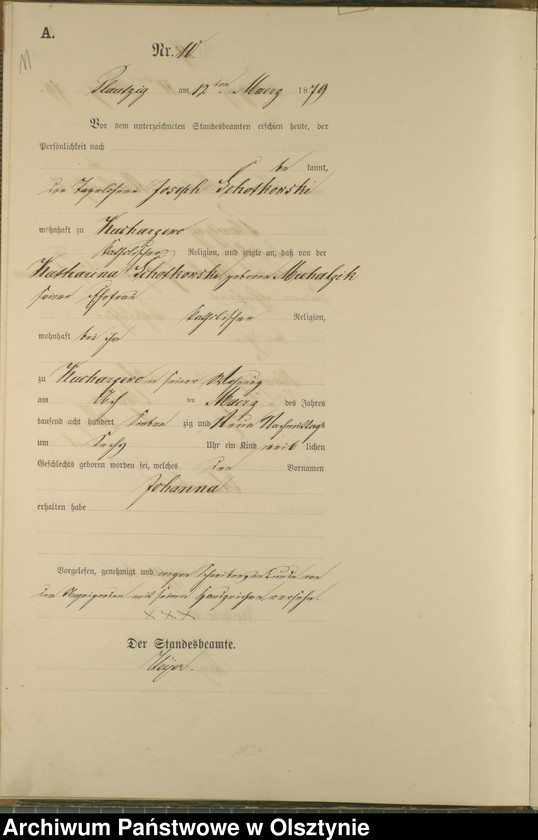 A.
Nr. 10
Plautzig am 12 ten Maerz 1879
Vor dem unterzeichneten Standesbeamten erschien heute, der
Persönlichkeit nach
be kannt,
der Tagelöhner Joseph Schotkowski
wohnhaft zu Kucharzewo
katholischer Religion, und zeigte an, daß von der
Katharina Schotkowski, geborene Michalzik
seiner Ehefrau
katholischer Religion,
wohnhaft bei ihm
zu Kucharzewo in seiner Wohnung
am ten Maerz des Jahrs
tausend acht hundert sieben zig und neun Nachmittags
um sechs Uhr ein Kind weib lichen
Geschlechts geboren worden sei, welches den Vornamen
Johanna
erhalten habe
Vorgelesen, genehmigt und wegen Schreibensunkunde von
dem Anzeigenden mit seinem Handzeichen versehen.
XXX
Der Standesbeamte.
Archiwum Państwowe w Olsztynie